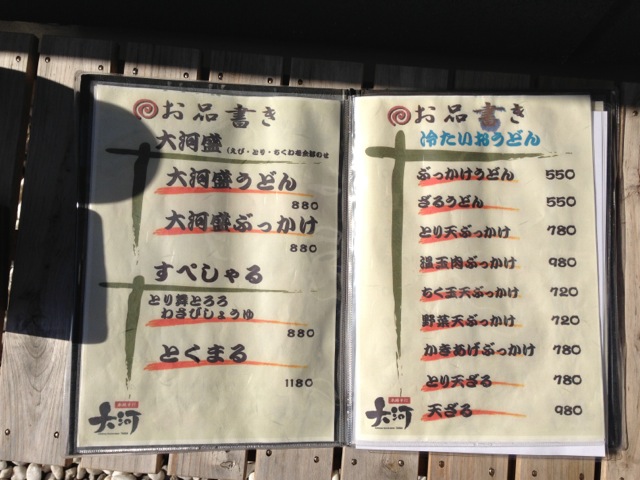 お品書き
大河盛(えび・とり・ちくわ
大河盛うどん
880
大河盛ぶっかけ
880
すぺしゃる
とり舞とろろ
わさびしょうゆ
880
とくまる
1180
大河
お品書き
冷たいおうどん
ぶっかけうどん 550
ざるうどん 550
とり天ぶっかけ 780
温玉肉ぶっかけ 980
ちく玉天ぶっかけ 720
野菜天ぶっかけ 720
かきあげぶっかけ 780
とり天ざる 780
天ざる 980
大河